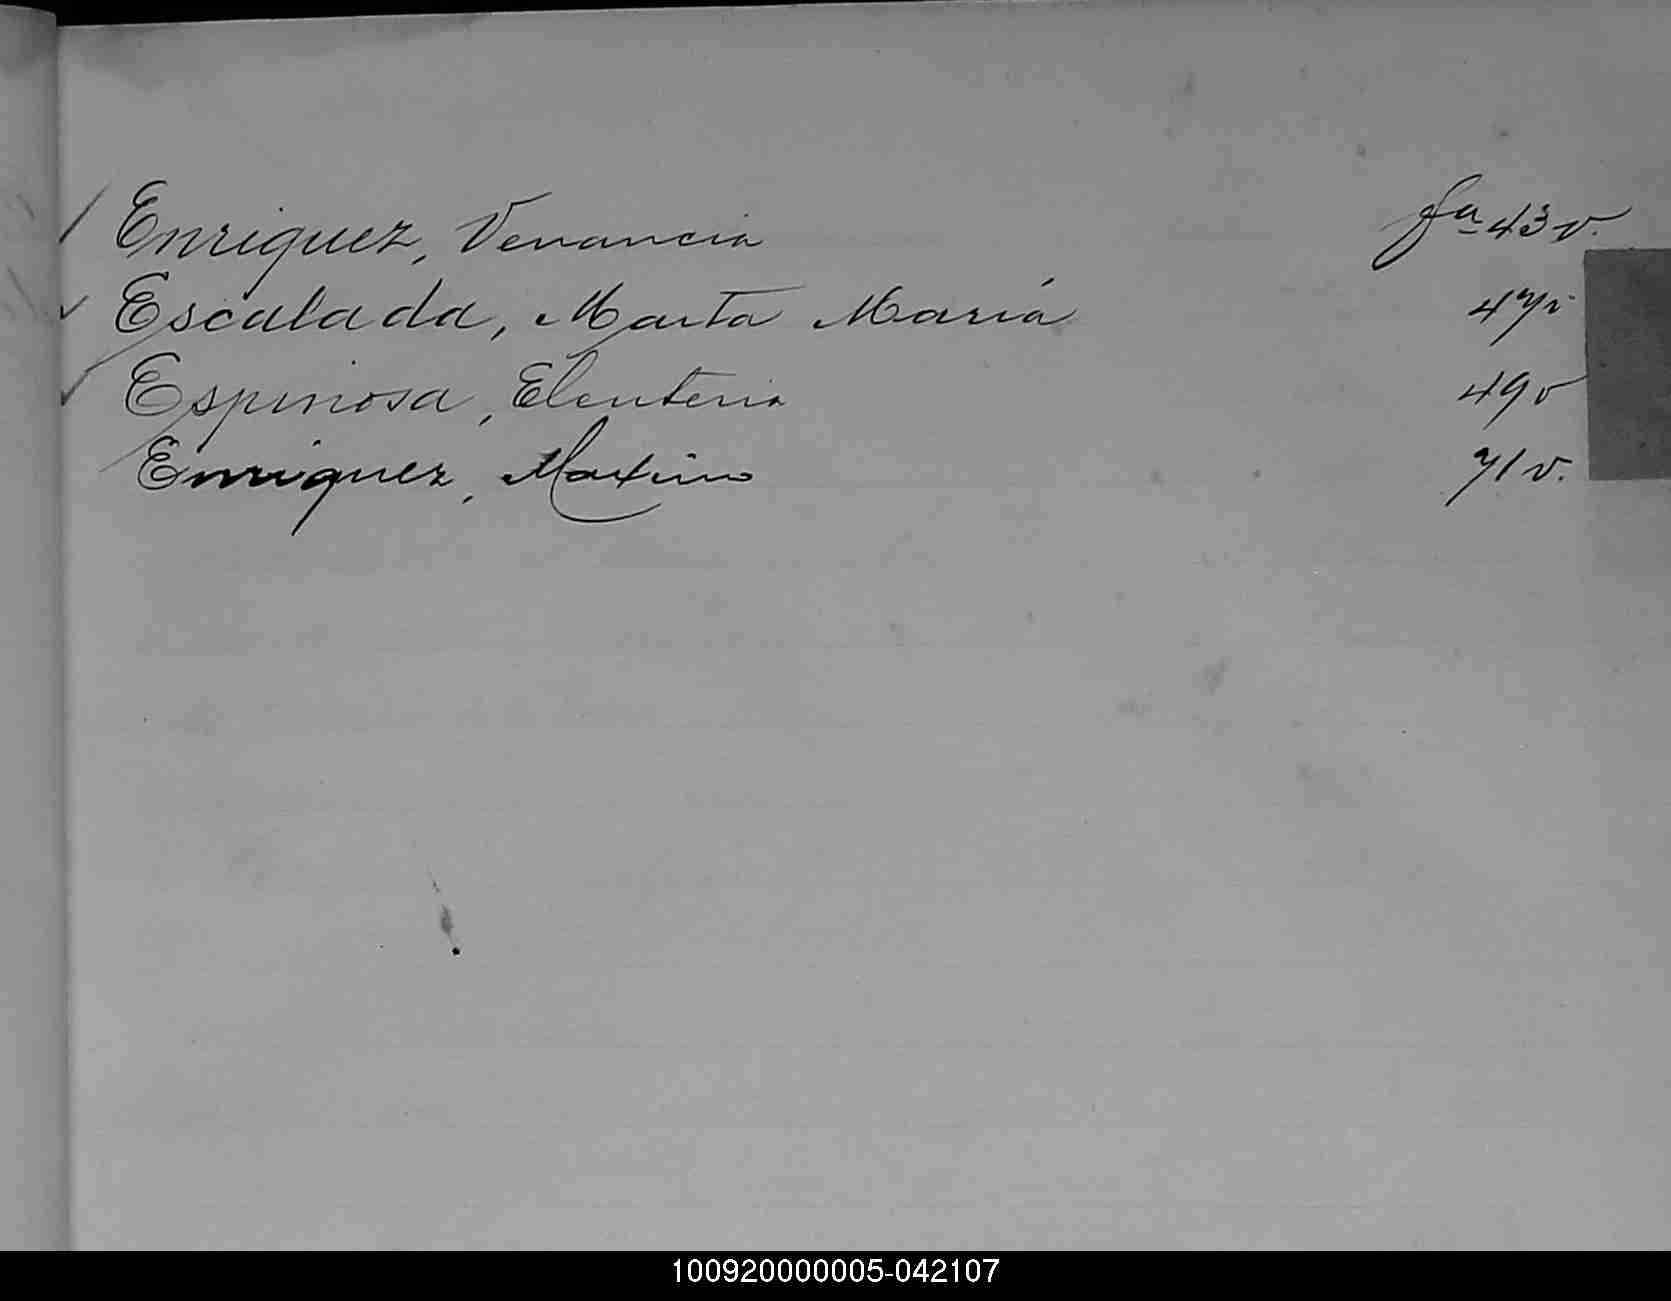 Enriquez, Venancia fa 43 v.
Escalada, Marta María 47
Espinosa, Eleuteria 49 v
Enriquez, Maximo 71 v.
100920000005-042107